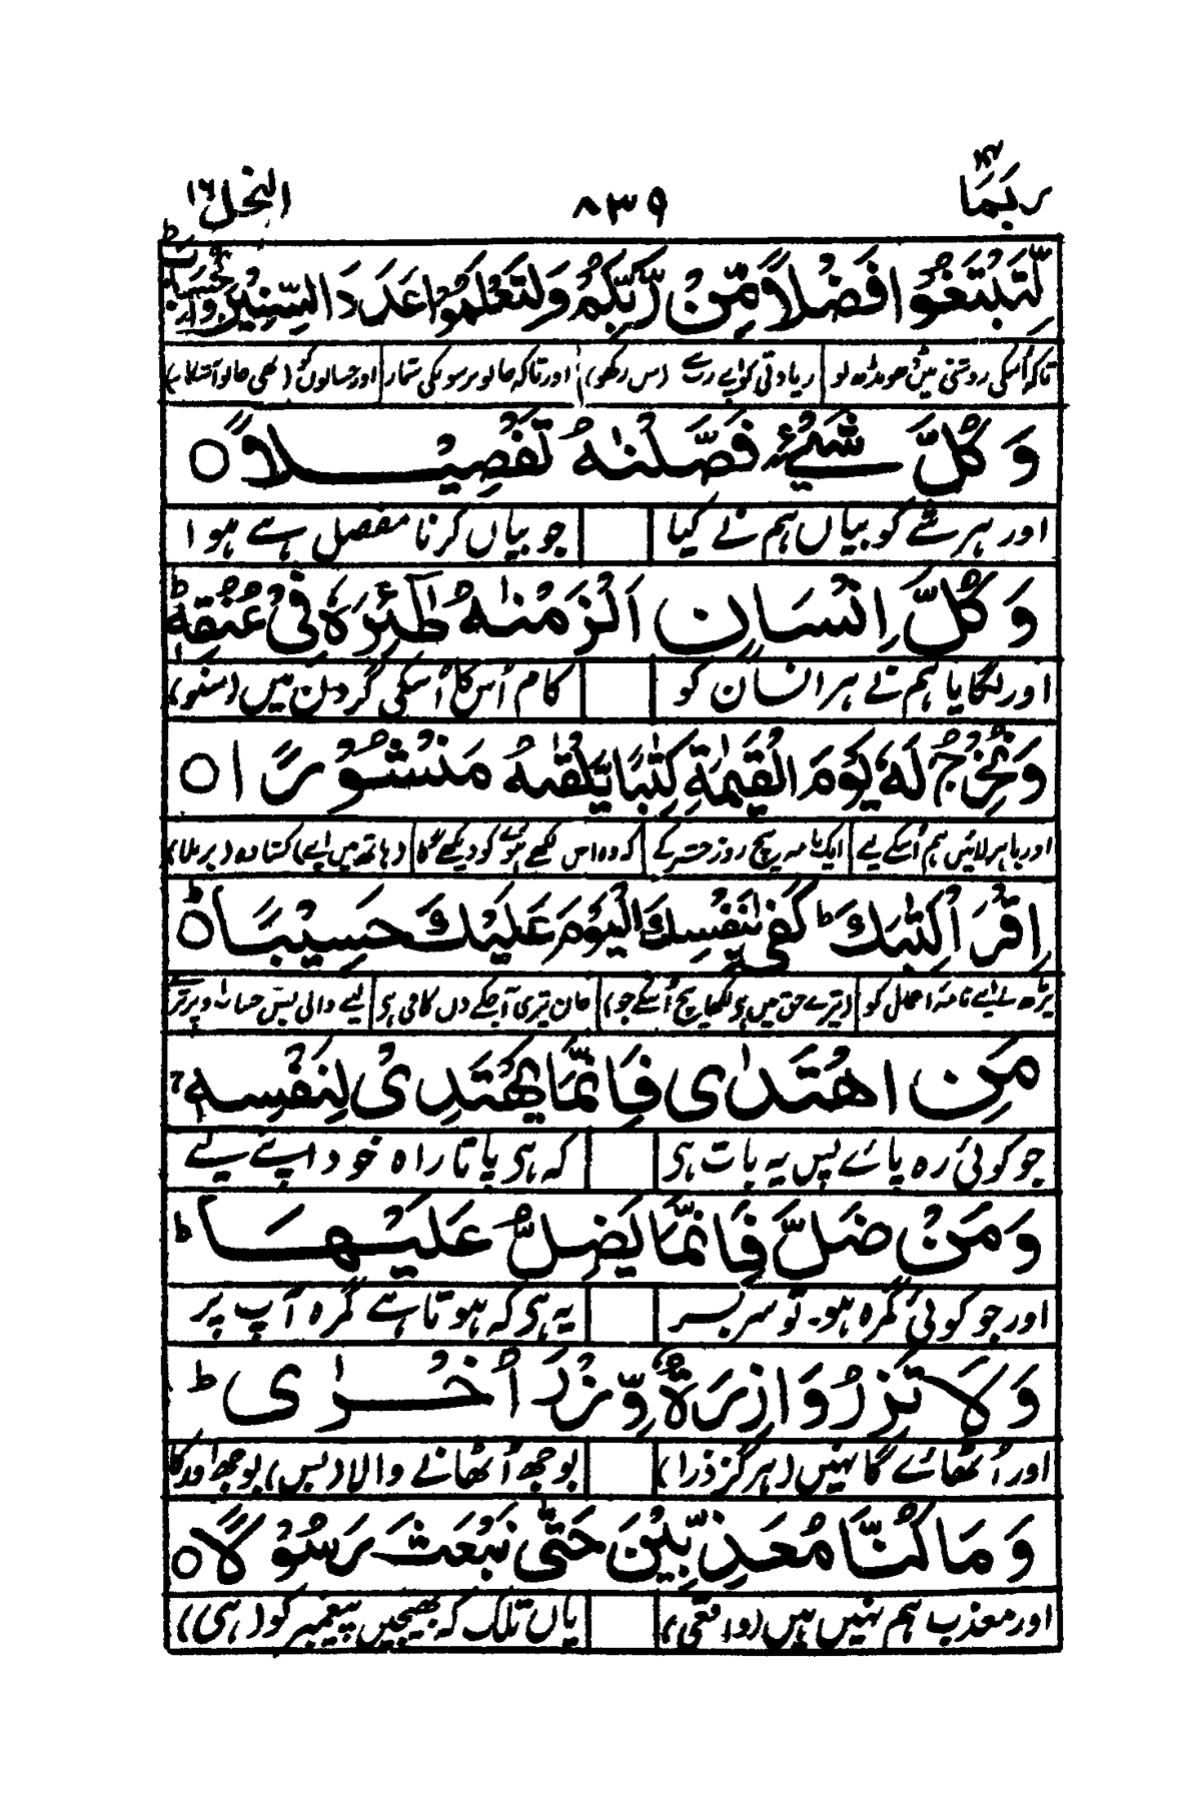 ربما ١٤ ٨٣٩ النحل ١٦
لِّتَبْتَغُوا فَضْلًا مِّنْ رَّبِّكُمْ وَلِتَعْلَمُوا عَدَدَ السِّنِيْنَ وَالْحِسَابَ ؕ
تاکہ اُسکی روشنی میں ڈھونڈھ لو اور تاکہ جانو برسونکی شمار اور حسابوں کو
وَ كُلَّ شَيْءٍ فَصَّلْنٰهُ تَفْصِيْلًا ○
اور ہر شے کو بیاں ہم نے کیا جو بیاں کرنا مفصل ہے ہوا
وَ كُلَّ اِنْسَانٍ اَلْزَمْنٰهُ طٰٓئِرَهٗ فِيْ عُنُقِهٖ ؕ
اور لگایا ہم نے ہر انسان کو کام اُس کا اُسکی گردن میں (سنو)
وَ نُخْرِجُ لَهٗ يَوْمَ الْقِيٰمَةِ كِتٰبًا يَّلْقٰىهُ مَنْشُوْرًا ○
اور باہر لائیں ہم اُسکے لیے ایک نامہ بیچ روز حشر کے کہ وہ اس لکھے ہوئے کو دیکھے گا (ہاتھ میں اپنے) کشادہ (برملا)
اِقْرَاْ كِتٰبَكَ ؕ كَفٰى بِنَفْسِكَ الْيَوْمَ عَلَيْكَ حَسِيْبًا ○ؕ
پڑھ لے اپنے نامۂ اعمال کو (تیرے حق میں ہی لکھا بیچ اُسکے جو) جان تیری آجکے دن کافی ہی لینے والی بس حساب
مَنِ اهْتَدٰى فَاِنَّمَا يَهْتَدِيْ لِنَفْسِهٖ ۚ
جو کوئی رہ پائے پس یہ بات ہی کہ ہی پاتا راہ خود اپنے لیے
وَ مَنْ ضَلَّ فَاِنَّمَا يَضِلُّ عَلَيْهَا ؕ
اور جو کوئی گمرہ ہو۔ تو سربسر یہ ہی کہ ہوتا ہے گمرہ آپ پر
وَ لَا تَزِرُ وَازِرَةٌ وِّزْرَ اُخْرٰى ؕ
اور اُٹھائے گا نہیں (ہرگز ذرا) بوجھ اُٹھانے والا (بس) بوجھ اور کا
وَ مَا كُنَّا مُعَذِّبِيْنَ حَتّٰى نَبْعَثَ رَسُوْلًا ○
اور معذب ہم نہیں ہیں (واقعی) یاں تلک کہ بھیجیں پیغمبر کو (ہی)